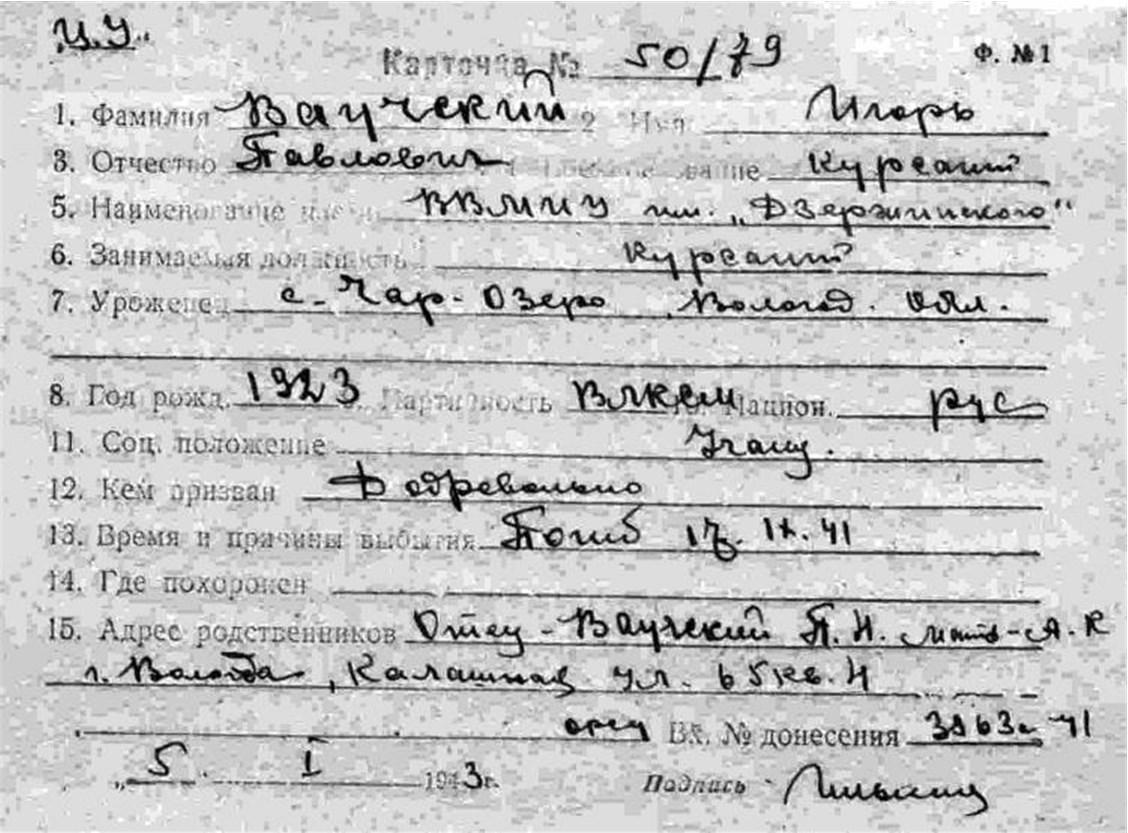 „Ц.У“
Карточка № 50/79 Ф. № 1
1. Фамилия Ваучский 2 Имя Игорь
3. Отчество Павлович 4 Воинское звание Курсант
5. Наименование части ВВМИУ им. „Дзержинского“
6. Занимаемая должность Курсант
7. Уроженец с. Чар-Озеро, Вологод. Обл.
8. Год рожд. 1923 9. Партийность ВЛКСМ 10. Национ. рус
11. Соц. положение Учащ.
12. Кем призван Добровольно
13. Время и причины выбытия Погиб 17. IX. 41
14. Где похоронен
15. Адрес родственников Отец - Ваучский П. Н. мать - А. К
г. Вологда, Калашная ул. 65 кв. 4
Вх. № донесения 41
„5“ I 1943г. Подпись